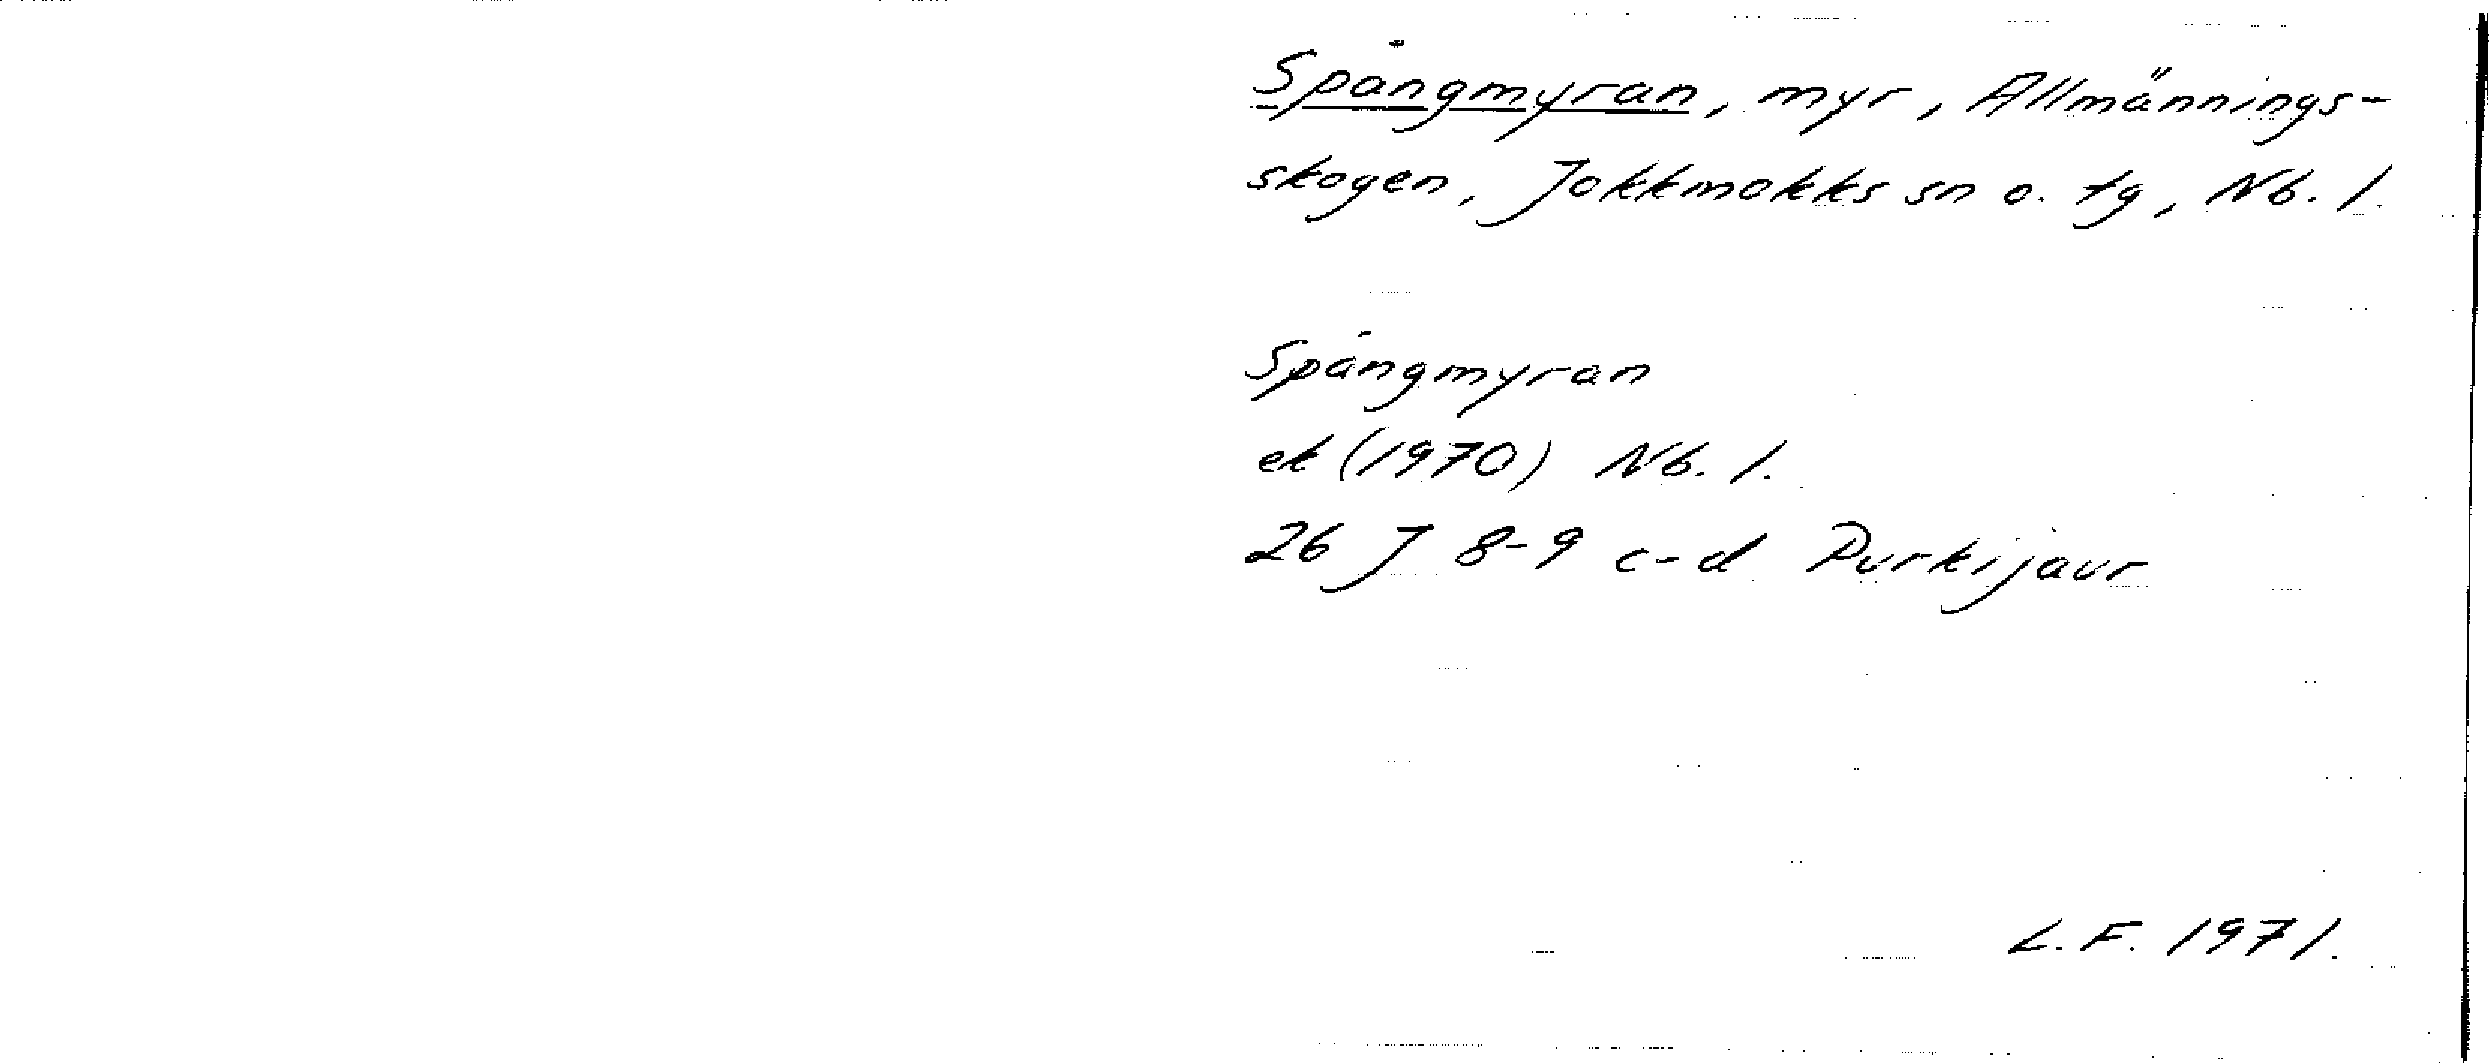 Spångmyran, myr, Allmännings-
skogen, Jokkmokks sn o. tg, Nb. l.
Spångmyran
ek (1970) Nb. l.
26 J 8-9 c-d Purkijaur
L. F. 1971.